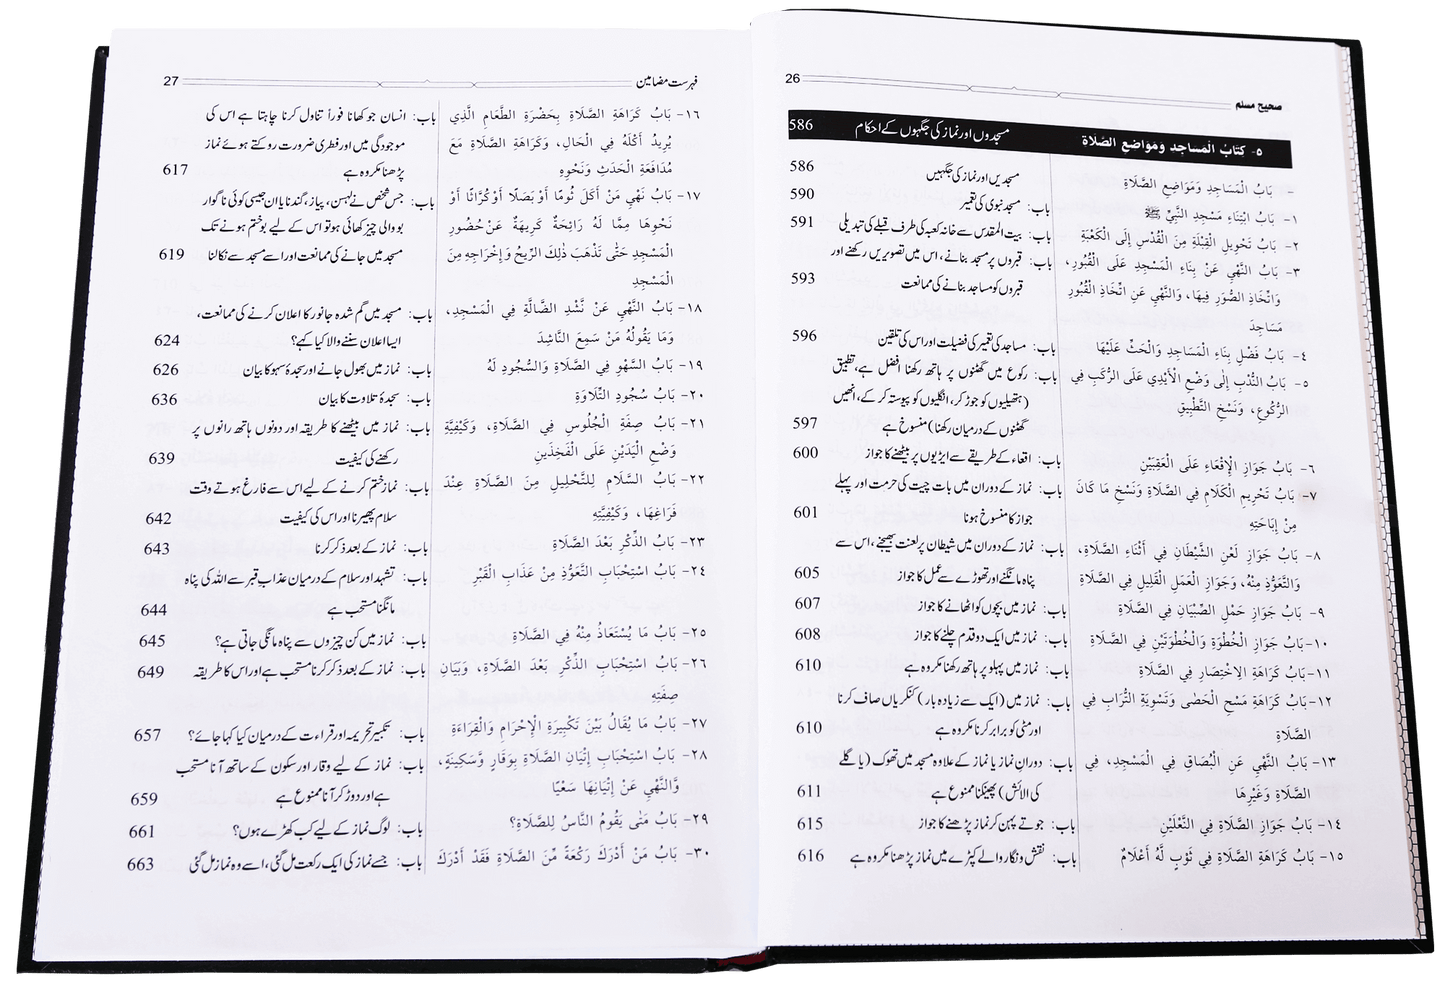 26
صحیح مسلم
٥- كتابُ الْمَساجِد وَمَوَاضِعِ الصَّلَاةِ مسجدوں اور نماز کی جگہوں کے احکام 586
- بَابُ الْمَسَاجِدِ وَمَوَاضِعِ الصَّلَاةِ مسجدیں اور نماز کی جگہیں 586
١- بَابُ ابْتِنَاءِ مَسْجِدِ النَّبِيِّ ﷺ باب: مسجد نبوی کی تعمیر 590
٢- بَابُ تَحْوِيلِ الْقِبْلَةِ مِنَ الْقُدْسِ إِلَى الْكَعْبَةِ باب: بیت المقدس سے خانہ کعبہ کی طرف قبلے کی تبدیلی 591
٣- بَابُ النَّهْيِ عَنْ بِنَاءِ الْمَسْجِدِ عَلَى الْقُبُورِ، باب: قبروں پر مسجد بنانے، اس میں تصویریں رکھنے اور
وَاتِّخَاذِ الصُّوَرِ فِيهَا، وَالنَّهْيِ عَنِ اتِّخَاذِ الْقُبُورِ قبروں کو مساجد بنانے کی ممانعت 593
مَسَاجِدَ
٤- بَابُ فَضْلِ بِنَاءِ الْمَسَاجِدِ وَالْحَثِّ عَلَيْهَا باب: مساجد کی تعمیر کی فضیلت اور اس کی تلقین 596
٥- بَابُ النَّدْبِ إِلَى وَضْعِ الْأَيْدِي عَلَى الرُّكَبِ فِي باب: رکوع میں گھٹنوں پر ہاتھ رکھنا افضل ہے، تطبیق
الرُّكُوعِ، وَنَسْخِ التَّطْبِيقِ (ہتھیلیوں کو جوڑ کر، انگلیوں کو پیوستہ کر کے، انھیں
گھٹنوں کے درمیان رکھنا) منسوخ ہے 597
٦- بَابُ جَوَازِ الْإِقْعَاءِ عَلَى الْعَقِبَيْنِ باب: اقعاء کے طریقے سے ایڑیوں پر بیٹھنے کا جواز 600
٧- بَابُ تَحْرِيمِ الْكَلَامِ فِي الصَّلَاةِ وَنَسْخِ مَا كَانَ باب: نماز کے دوران میں بات چیت کی حرمت اور پہلے
مِنْ إِبَاحَتِهِ جواز کا منسوخ ہونا 601
٨- بَابُ جَوَازِ لَعْنِ الشَّيْطَانِ فِي أَثْنَاءِ الصَّلَاةِ، باب: نماز کے دوران میں شیطان پر لعنت بھیجنے، اس سے
وَالتَّعَوُّذِ مِنْهُ، وَجَوَازِ الْعَمَلِ الْقَلِيلِ فِي الصَّلَاةِ پناہ مانگنے اور تھوڑے سے عمل کا جواز 605
٩- بَابُ جَوَازِ حَمْلِ الصِّبْيَانِ فِي الصَّلَاةِ باب: نماز میں بچوں کو اٹھانے کا جواز 607
١٠- بَابُ جَوَازِ الْخُطْوَةِ وَالْخُطْوَتَيْنِ فِي الصَّلَاةِ باب: نماز میں ایک دو قدم چلنے کا جواز 608
١١- بَابُ كَرَاهَةِ الِاخْتِصَارِ فِي الصَّلَاةِ باب: نماز میں پہلو پر ہاتھ رکھنا مکروہ ہے 610
١٢- بَابُ كَرَاهَةِ مَسْحِ الْحَصٰى وَتَسْوِيَةِ التُّرَابِ فِي باب: نماز میں (ایک سے زیادہ بار) کنکریاں صاف کرنا
الصَّلَاةِ اور مٹی کو برابر کرنا مکروہ ہے 610
١٣- بَابُ النَّهْيِ عَنِ الْبُصَاقِ فِي الْمَسْجِدِ، فِي باب: دوران نماز یا نماز کے علاوہ مسجد میں تھوک (یا گلے
الصَّلَاةِ وَغَيْرِهَا کی الائش) پھینکنا ممنوع ہے 611
١٤- بَابُ جَوَازِ الصَّلَاةِ فِي النَّعْلَيْنِ باب: جوتے پہن کر نماز پڑھنے کا جواز 615
١٥- بَابُ كَرَاهَةِ الصَّلَاةِ فِي ثَوْبٍ لَّهُ أَعْلَامٌ باب: نقش و نگار والے کپڑے میں نماز پڑھنا مکروہ ہے 616
فہرست مضامین 27
١٦- بَابُ كَرَاهَةِ الصَّلَاةِ بِحَضْرَةِ الطَّعَامِ الَّذِي باب: انسان جو کھانا فوراً تناول کرنا چاہتا ہے اس کی
يُرِيدُ أَكْلَهُ فِي الْحَالِ، وَكَرَاهَةِ الصَّلَاةِ مَعَ موجودگی میں اور فطری ضرورت روکتے ہوئے نماز
مُدَافَعَةِ الْحَدَثِ وَنَحْوِهِ پڑھنا مکروہ ہے 617
١٧- بَابُ نَهْيِ مَنْ أَكَلَ ثُومًا أَوْ بَصَلًا أَوْ كُرَّاثًا أَوْ باب: جس شخص نے لہسن، پیاز، گندنا یا ان جیسی کوئی ناگوار
نَحْوِهَا مِمَّا لَهُ رَائِحَةٌ كَرِيهَةٌ عَنْ حُضُورِ بو والی چیز کھائی ہو تو اس کے لیے بو ختم ہونے تک
الْمَسْجِدِ حَتّٰى تَذْهَبَ ذٰلِكَ الرِّيحُ وَإِخْرَاجِهِ مِنَ مسجد میں جانے کی ممانعت اور اسے مسجد سے نکالنا 619
الْمَسْجِدِ
١٨- بَابُ النَّهْيِ عَنْ نَشْدِ الضَّالَّةِ فِي الْمَسْجِدِ، باب: مسجد میں گم شدہ جانور کا اعلان کرنے کی ممانعت،
وَمَا يَقُولُهُ مَنْ سَمِعَ النَّاشِدَ ایسا اعلان سننے والا کیا کہے؟ 624
١٩- بَابُ السَّهْوِ فِي الصَّلَاةِ وَالسُّجُودِ لَهُ باب: نماز میں بھول جانے اور سجدۂ سہو کا بیان 626
٢٠- بَابُ سُجُودِ التِّلَاوَةِ باب: سجدۂ تلاوت کا بیان 636
٢١- بَابُ صِفَةِ الْجُلُوسِ فِي الصَّلَاةِ، وَكَيْفِيَّةِ باب: نماز میں بیٹھنے کا طریقہ اور دونوں ہاتھ رانوں پر
وَضْعِ الْيَدَيْنِ عَلَى الْفَخِذَيْنِ رکھنے کی کیفیت 639
٢٢- بَابُ السَّلَامِ لِلتَّحْلِيلِ مِنَ الصَّلَاةِ عِنْدَ باب: نماز ختم کرنے کے لیے اس سے فارغ ہوتے وقت
فَرَاغِهَا، وَكَيْفِيَّتِهِ سلام پھیرنا اور اس کی کیفیت 642
٢٣- بَابُ الذِّكْرِ بَعْدَ الصَّلَاةِ باب: نماز کے بعد ذکر کرنا 643
٢٤- بَابُ اسْتِحْبَابِ التَّعَوُّذِ مِنْ عَذَابِ الْقَبْرِ باب: تشہد اور سلام کے درمیان عذاب قبر سے اللہ کی پناہ
مانگنا مستحب ہے 644
٢٥- بَابُ مَا يُسْتَعَاذُ مِنْهُ فِي الصَّلَاةِ باب: نماز میں کن چیزوں سے پناہ مانگی جاتی ہے؟ 645
٢٦- بَابُ اسْتِحْبَابِ الذِّكْرِ بَعْدَ الصَّلَاةِ، وَبَيَانِ باب: نماز کے بعد ذکر کرنا مستحب ہے اور اس کا طریقہ 649
صِفَتِهِ
٢٧- بَابُ مَا يُقَالُ بَيْنَ تَكْبِيرَةِ الْإِحْرَامِ وَالْقِرَاءَةِ باب: تکبیر تحریمہ اور قراءت کے درمیان کیا کہا جائے؟ 657
٢٨- بَابُ اسْتِحْبَابِ إِتْيَانِ الصَّلَاةِ بِوَقَارٍ وَّسَكِينَةٍ، باب: نماز کے لیے وقار اور سکون کے ساتھ آنا مستحب
وَّالنَّهْيِ عَنْ إِتْيَانِهَا سَعْيًا ہے اور دوڑ کر آنا ممنوع ہے 659
٢٩- بَابُ مَتٰى يَقُومُ النَّاسُ لِلصَّلَاةِ؟ باب: لوگ نماز کے لیے کب کھڑے ہوں؟ 661
٣٠- بَابُ مَنْ أَدْرَكَ رَكْعَةً مِّنَ الصَّلَاةِ فَقَدْ أَدْرَكَ باب: جسے نماز کی ایک رکعت مل گئی، اسے وہ نماز مل گئی 663